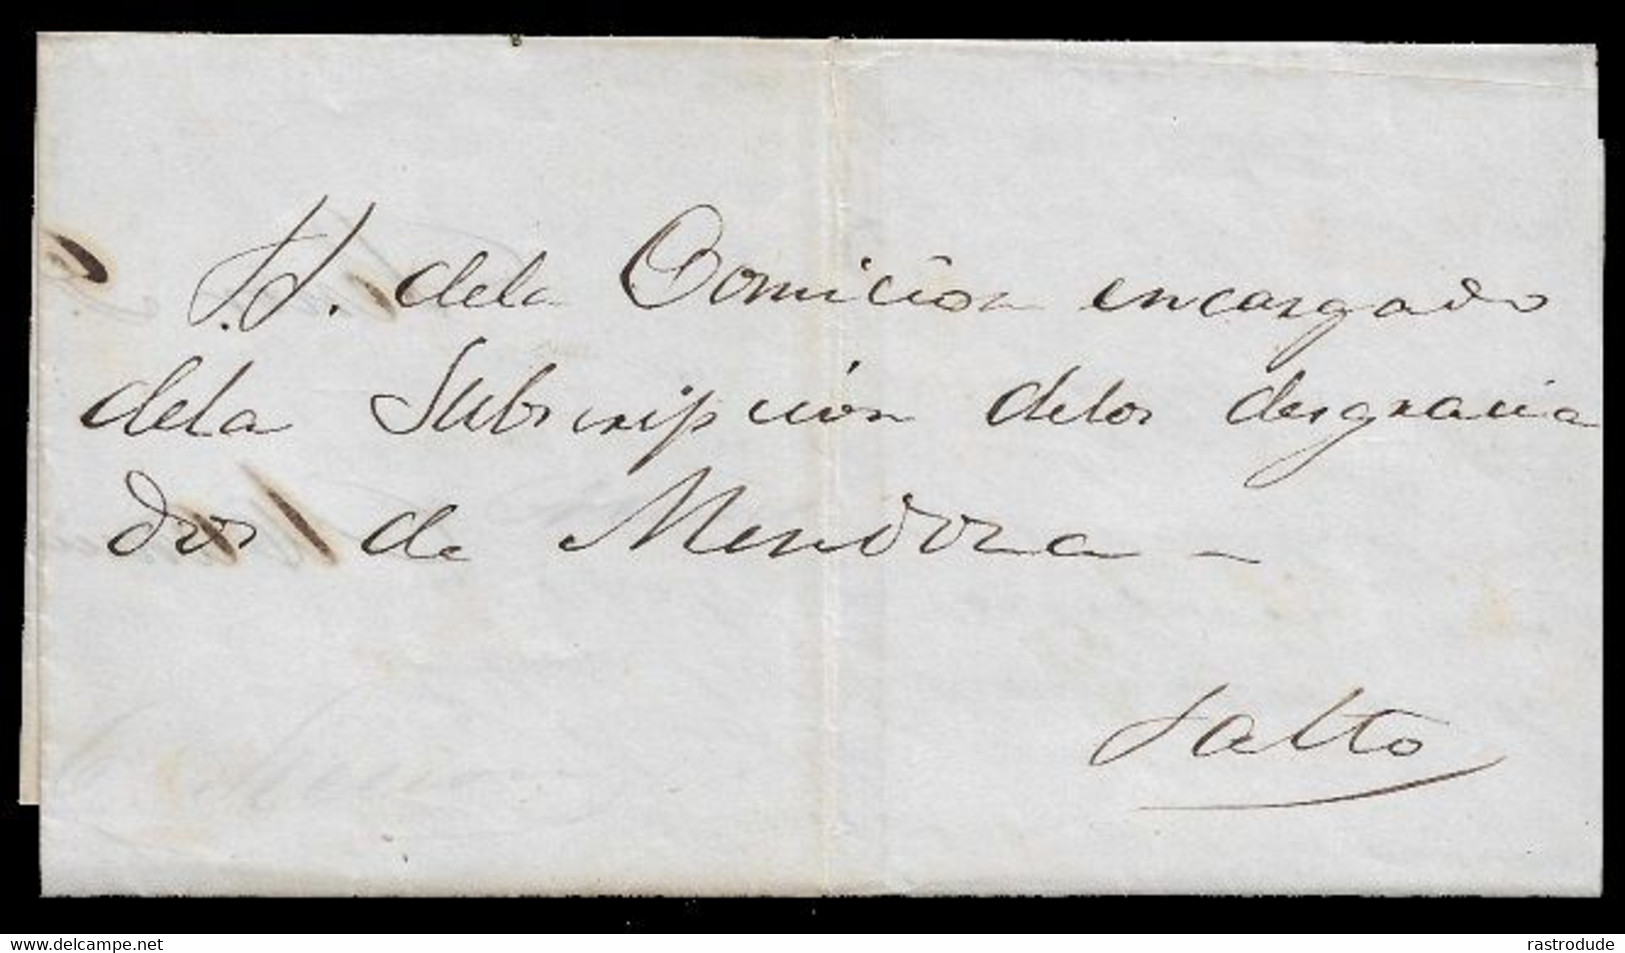 S.S. dela Comicion encargado
dela Subscripcion delos desgracia
dos de Mendoza -
Salto
www.delcampe.net
rastrodude